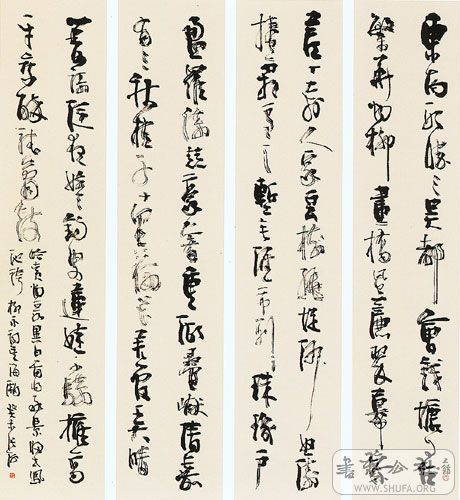 東南形勝三吳都會錢塘自古
繁華烟柳畫橋風簾翠幕
差十萬人家雲樹繞堤沙怒濤
捲霜雪天塹無涯市列珠璣戶
盈羅綺競豪奢重湖疊巘清嘉
有三秋桂子十里荷花羌管弄晴
菱歌泛夜嬉嬉釣叟蓮娃千騎擁高
牙乘醉聽簫鼓
吟賞烟霞異日圖將好景歸去鳳
池誇 柳永詞望海潮 癸未
WWW.SHUFA.ORG